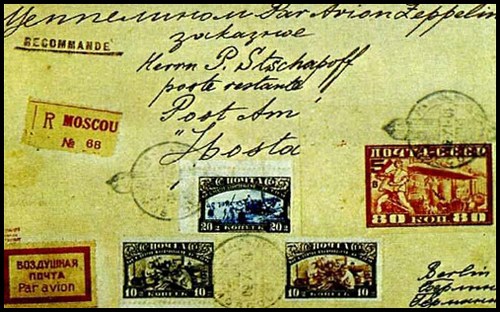 Цеппелином Par Avion Zeppelin
RECOMMANDÉ
заказное
Herrn P. Stschapoff
poste restante
Post Am
"Hosta
R MOSCOU
№ 68
ПОЧТА СССР
80 КОП 80
ПОЧТА
20+2 КОПЕЕК 20+2
ВОЗДУШНАЯ
ПОЧТА
Par avion
ПОЧТА
10+2 КОПЕЕК 10+2
ПОЧТА
10+2 КОПЕЕК 10+2
Berlin
Берлин
Германия